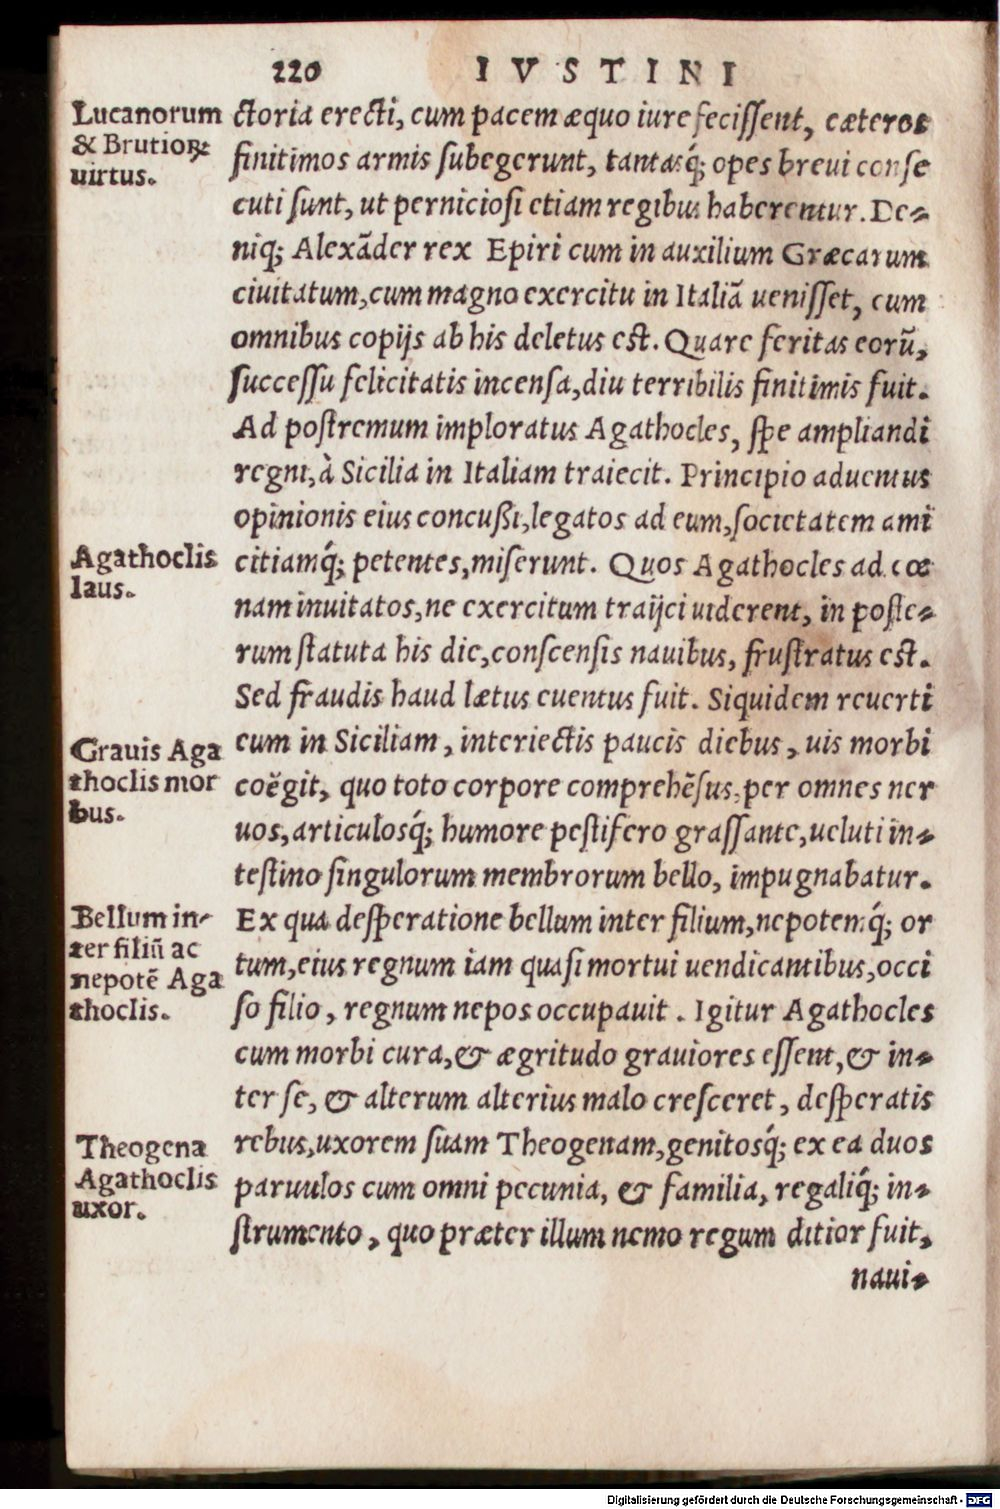 220 IVSTINI
Lucanorum
& Brutioꝝ
uirtus.
ctoria erecti, cum pacem æquo iure fecissent, cæteros
finitimos armis subegerunt, tantasq́; opes breui conse
cuti sunt, ut perniciosi etiam regibus haberentur. De-
niq; Alexãder rex Epiri cum in auxilium Græcarum
ciuitatum, cum magno exercitu in Italiã uenisset, cum
omnibus copijs ab his deletus est. Quare feritas eorũ,
successu felicitatis incensa, diu terribilis finitimis fuit.
Ad postremum imploratus Agathocles, spe ampliandi
regni, à Sicilia in Italiam traiecit. Principio aduentus
opinionis eius concußi, legatos ad eum, societatem ami
Agathoclis
laus.
citiamq́; petentes, miserunt. Quos Agathocles ad cœ
nam inuitatos, ne exercitum traijci uiderent, in poste-
rum statuta his die, conscensis nauibus, frustratus est.
Sed fraudis haud lætus euentus fuit. Siquidem reuerti
Grauis Aga
thoclis mor
bus.
eum in Siciliam, interiectis paucis diebus, uis morbi
coëgit, quo toto corpore comprehẽsus, per omnes ner
uos, articulosq́; humore pestifero grassante, ueluti in-
testino singulorum membrorum bello, impugnabatur.
Bellum in-
ter filiũ ac
nepotẽ Aga
thoclis.
Ex qua desperatione bellum inter filium, nepotemq́; or
tum, eius regnum iam quasi mortui uendicantibus, occi
so filio, regnum nepos occupauit. Igitur Agathocles
cum morbi cura, & ægritudo grauiores essent, & in-
ter se, & alterum alterius malo cresceret, desperatis
Theogena
Agathoclis
uxor.
rebus, uxorem suam Theogenam, genitosq́; ex ea duos
paruulos cum omni pecunia, & familia, regaliq́; in-
strumento, quo præter illum nemo regum ditior fuit,
naui-
Digitalisierung gefördert durch die Deutsche Forschungsgemeinschaft - DFG